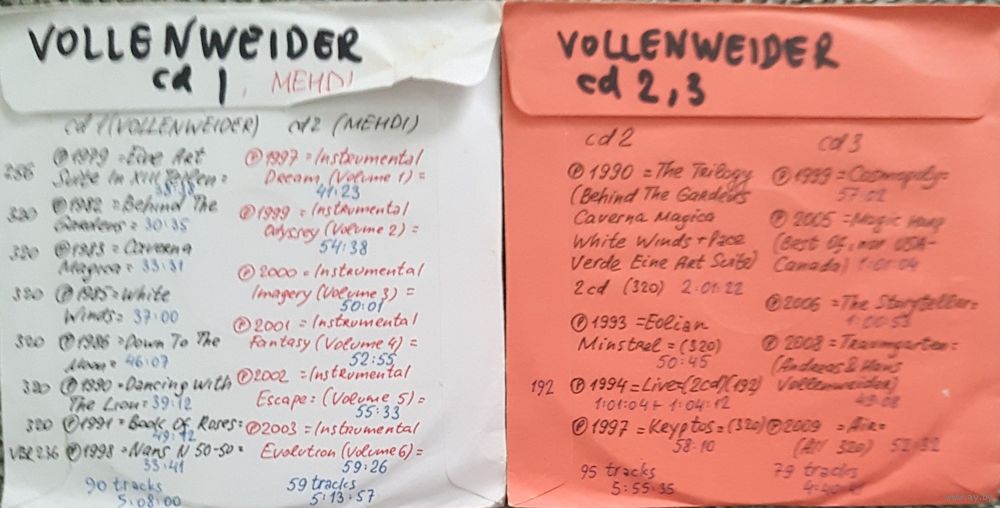 VOLLENWEIDER
cd 1, MEHDI
cd 1 (VOLLENWEIDER)
256 ℗ 1979 = Eine Art
Suite In XIII Teilen =
38:38
320 ℗ 1982 = Behind The
Gardens = 30:35
320 ℗ 1983 = Caverna
Magica = 33:31
320 ℗ 1985 = White
Winds = 37:00
320 ℗ 1986 = Down To The
Moon = 46:07
320 ℗ 1990 = Dancing With
The Lion = 39:12
320 ℗ 1991 = Book Of Roses =
49:12
VBR 236 ℗ 1998 = Nans N 50-50 =
33:41
90 tracks
5:08:00
cd 2 (MEHDI)
℗ 1997 = Instrumental
Dream (Volume 1) =
41:23
℗ 1999 = Instrumental
Odyssey (Volume 2) =
54:38
℗ 2000 = Instrumental
Imagery (Volume 3) =
50:01
℗ 2001 = Instrumental
Fantasy (Volume 4) =
52:55
℗ 2002 = Instrumental
Escape = (Volume 5) =
55:33
℗ 2003 = Instrumental
Evolution (Volume 6) =
59:26
59 tracks
5:13:57
VOLLENWEIDER
cd 2, 3
cd 2
℗ 1990 = The Trilogy
(Behind The Gardens
Caverna Magica
White Winds + Pace
Verde Eine Art Suite)
2cd (320) 2:01:22
℗ 1993 = Eolian
Minstrel = (320)
50:45
192 ℗ 1994 = Live = (2cd) (192)
1:01:04 + 1:04:12
℗ 1997 = Kryptos = (320)
58:10
95 tracks
5:55:35
cd 3
℗ 1999 = Cosmopoly =
57:02
℗ 2005 = Magic Harp
(Best Of, non USA-
Canada) 1:01:04
℗ 2006 = The Storyteller =
1:00:53
℗ 2008 = Traumgarten =
(Andreas & Hans
Vollenweider)
49:08
℗ 2009 = Air =
(All 320) 52:32
79 tracks
www.ay.by